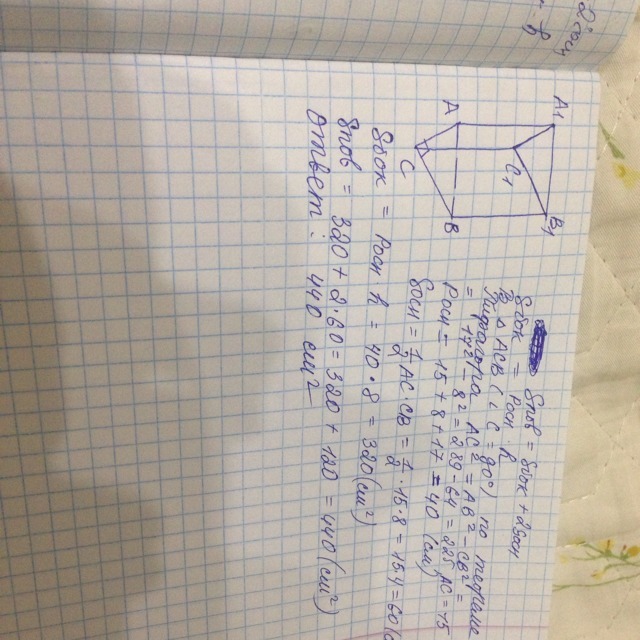 A1
B1
C1
A
B
C
Sпов = Sбок + 2Sосн
Sбок = Pосн · h
Из △ ACB (∠C = 90°) по теореме
Пифагора AC² = AB² - CB² =
= 17² - 8² = 289 - 64 = 225 AC = 15
Pосн = 15 + 8 + 17 = 40 (см)
Sосн = 1/2 AC · CB = 1/2 · 15 · 8 = 15·4 = 60 (с
Sбок = Pосн h = 40 · 8 = 320 (см²)
Sпов = 320 + 2·60 = 320 + 120 = 440 (см²)
Ответ: 440 см²